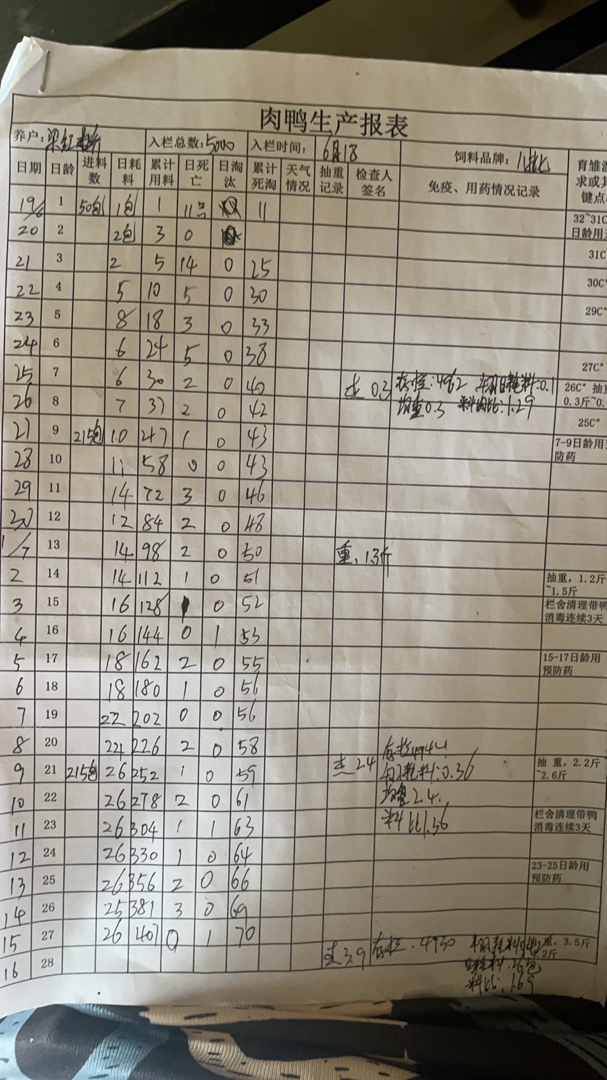 肉鸭生产报表
养户: 入栏总数:5000 入栏时间: 6月18 饲料品牌:
日期 日龄 进料数 日耗料 累计用料 日死亡 日淘汰 累计死淘 天气情况 抽重记录 检查人签名 免疫、用药情况记录 育雏
19/6 1 50包 1包 1 11 11 32~31C
20 2 2包 3 0 日龄用
21 3 2 5 14 0 25 31C
22 4 5 10 5 0 30 30C°
23 5 8 18 3 0 33 29C°
24 6 6 24 5 0 38
25 7 6 30 2 0 40 0.3 存栏:4962 耗料:0.1 27C°
26 8 7 37 2 0 42 均重0.3 料肉比:1.29 26C° 抽 0.3斤~0.
27 9 215包 10 47 1 0 43 25C°
28 10 11 58 0 0 43 7-9日龄用 防药
29 11 14 72 3 0 46
30 12 12 84 2 0 48
1/7 13 14 98 2 0 50 重,1.3斤
2 14 14 112 1 0 51 抽重,1.2斤~1.5斤
3 15 16 128 1 0 52 栏舍清理带鸭消毒连续3天
4 16 16 144 0 1 53
5 17 18 162 2 0 55 15-17日龄用预防药
6 18 18 180 1 0 56
7 19 22 202 0 0 56
8 20 24 226 2 0 58
9 21 215包 26 252 1 0 59 2.4 耗料:0.36 抽 重,2.2斤~2.6斤
10 22 26 278 2 0 61 均重2.4
11 23 26 304 1 1 63 料比1.56 栏舍清理带鸭消毒连续3天
12 24 26 330 1 0 64
13 25 26 356 2 0 66 23-25日龄用预防药
14 26 25 381 3 0 69
15 27 26 407 0 1 70
16 28 3.9 存栏.4930 重,3.5斤
料比:1.69